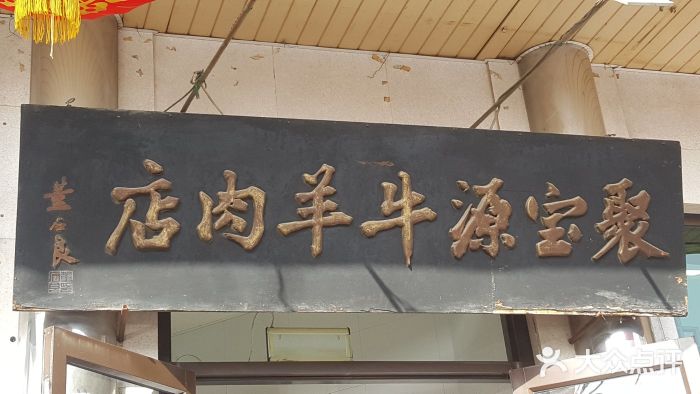 聚宝源牛羊肉店
董石良
大众点评